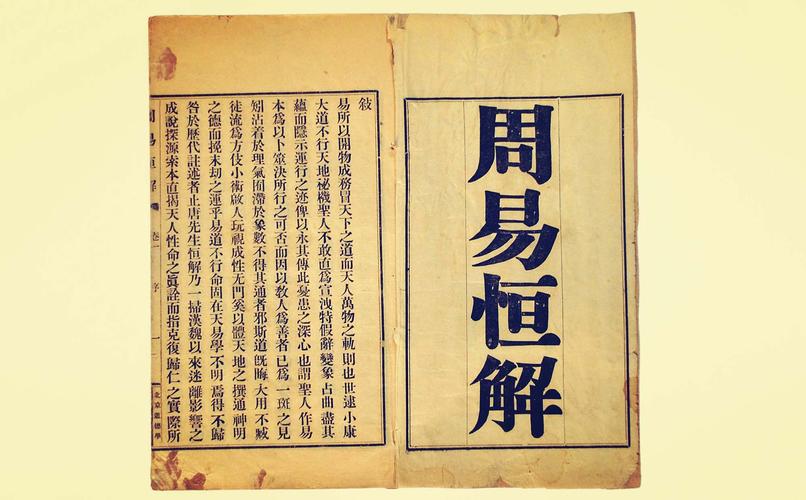 周易恒解
敍
易所以開物成務冒天下之道而天人萬物之軌則也世逮小康
大道不行天地祕機聖人不敢直爲宣洩特假辭變象占曲盡其
蘊而隱示運行之迹俾以永其傳此憂患之深心也謂聖人作易
本爲以卜筮決所行之可否而因以敎人爲善者已爲一斑之見
矧沾着於理氣囿滯於象數不得其通者邪斯道旣晦大用不臧
徒流爲方伎小術啟人玩視成性无門奚以體天地之撰通神明
之德而挽末劫之運乎易道不行命固在天易學不明焉得不歸
咎於歷代註述者止唐先生恒解乃一掃漢魏以來迷離影響之
成說探源索本直揭天人性命之眞詮而指克復歸仁之實際所
周易恒解
卷一
序
一
北京道德學